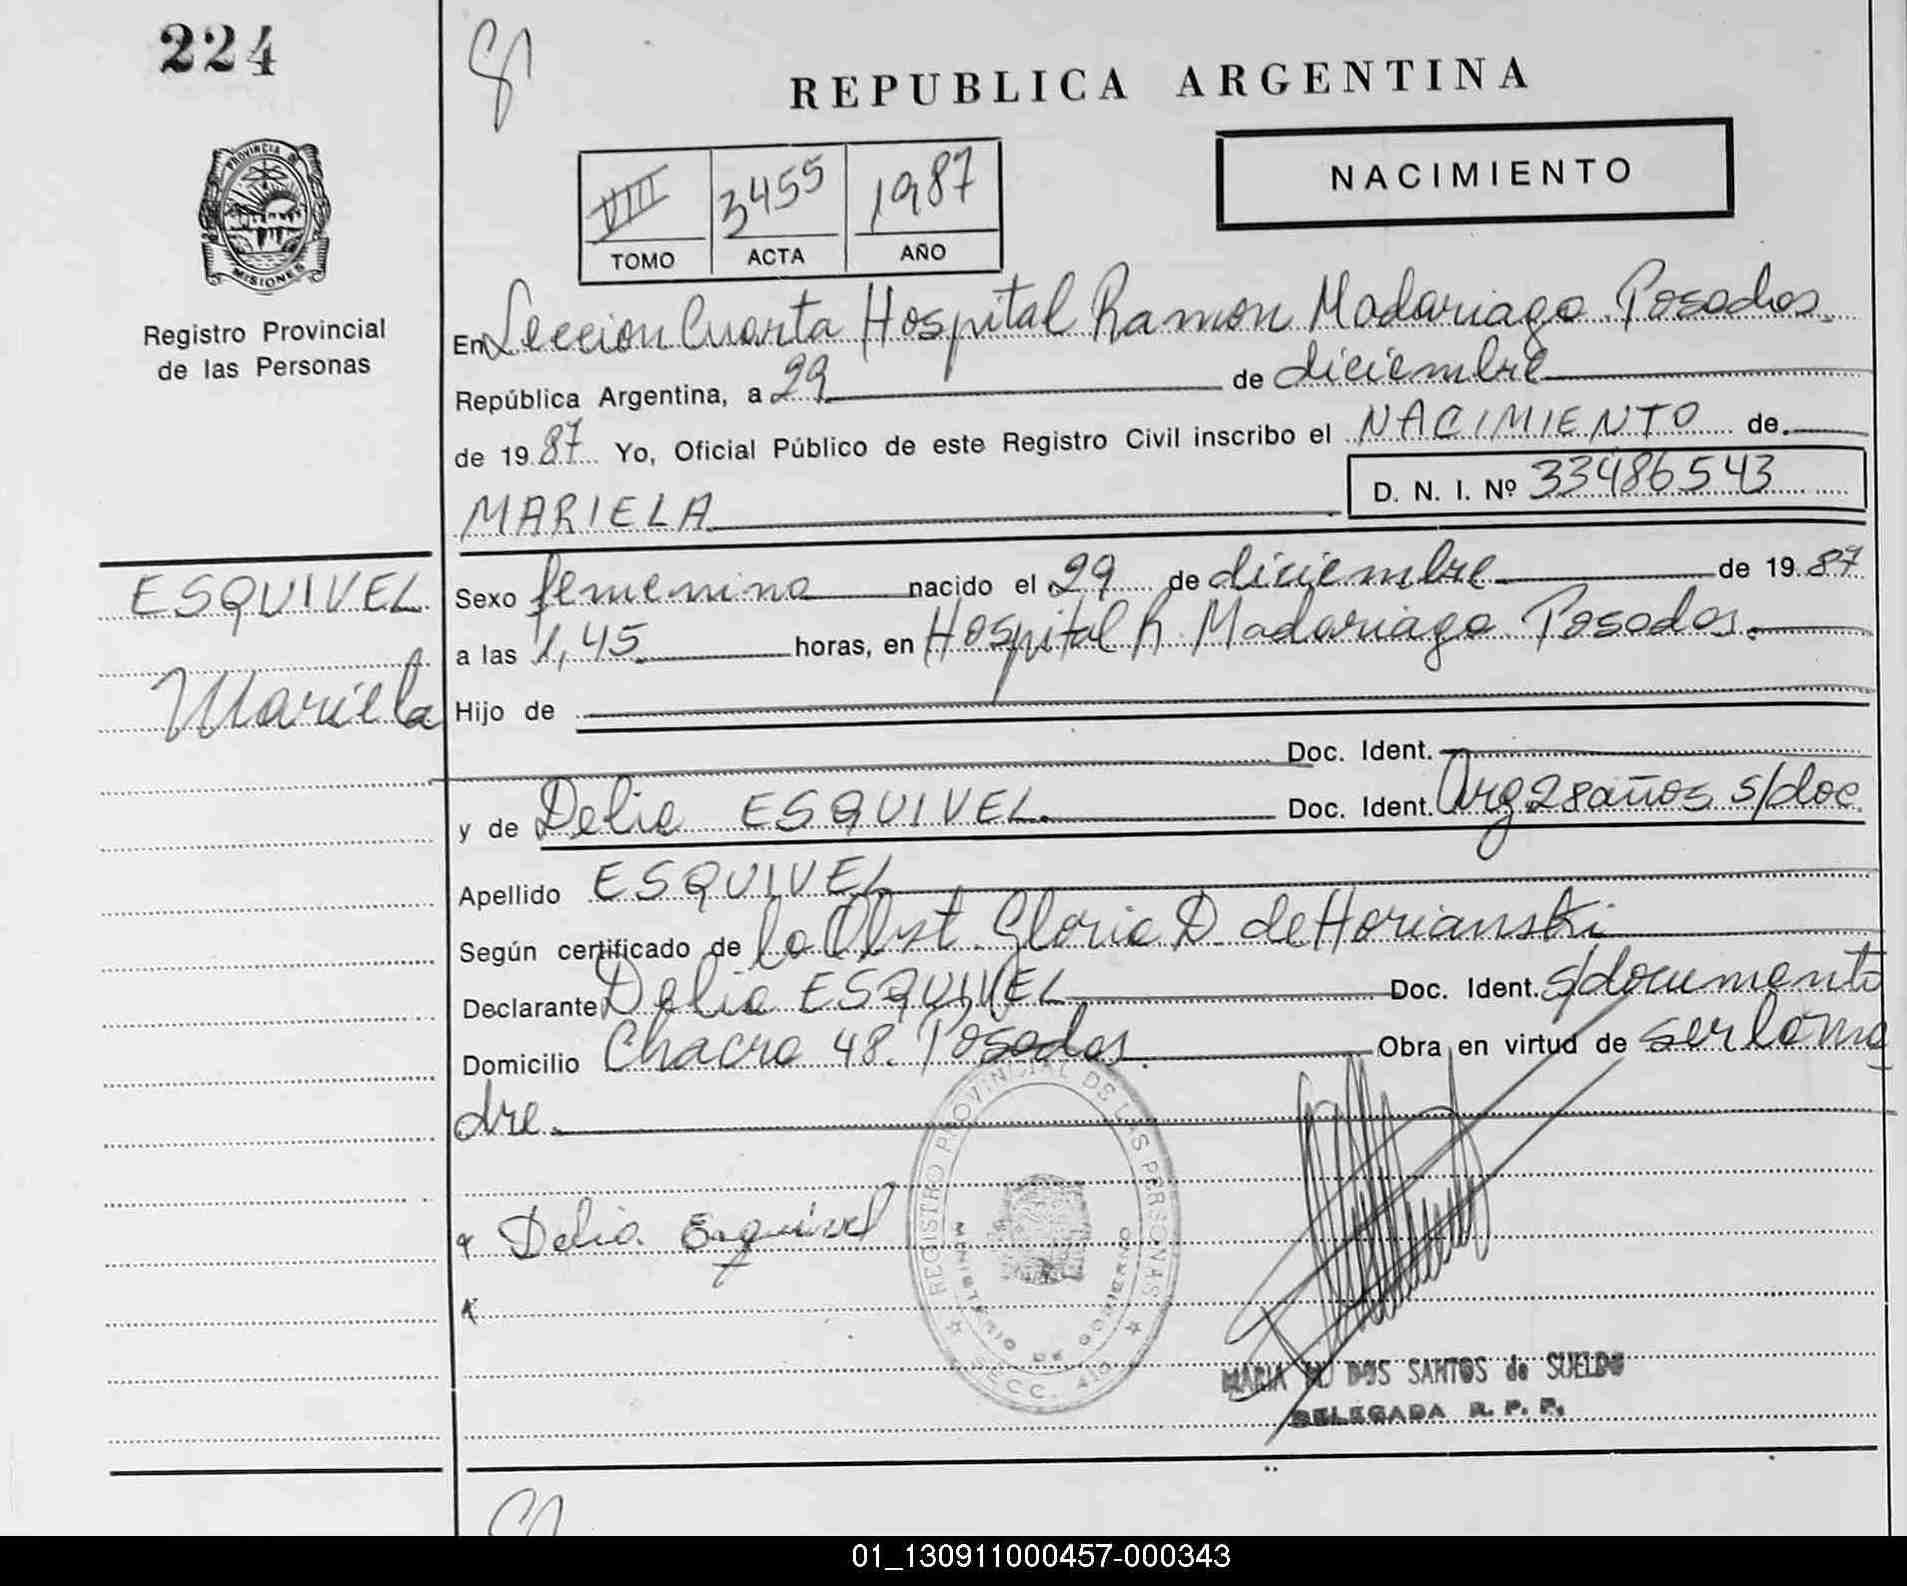 224
REPUBLICA ARGENTINA
PROVINCIA DE
MISIONES
Registro Provincial
de las Personas
VIII 3455 1987
TOMO ACTA AÑO
NACIMIENTO
En Seccion Cuarta Hospital Ramon Madariaga Posadas.
República Argentina, a 29 de diciembre
de 1987 Yo, Oficial Público de este Registro Civil inscribo el NACIMIENTO de
MARIELA D. N. I. Nº 33486543
ESQUIVEL
Mariela
Sexo femenino nacido el 29 de diciembre de 1987
a las 1,45 horas, en Hospital R. Madariaga Posadas.
Hijo de
Doc. Ident.
y de Delia ESQUIVEL. Doc. Ident. Arg 28 años s/doc.
Apellido ESQUIVEL
Según certificado de la Obst. Gloria D. de Horianski
Declarante Delia ESQUIVEL Doc. Ident. s/documento
Domicilio Chacra 48. Posadas. Obra en virtud de ser la ma
dre.
Delia Esquivel
REGISTRO PROVINCIAL DE LAS PERSONAS
MINISTERIO DE GOBIERNO
SECC. 4ta
MARIA DOS SANTOS de SUELDO
DELEGADA R. P. P.
01_130911000457-000343